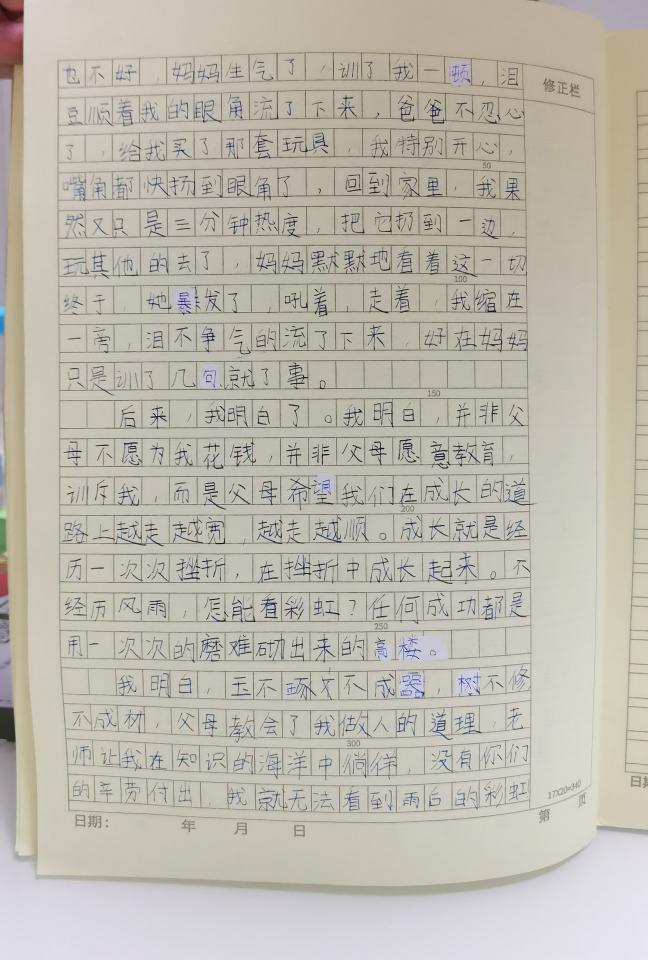 也不好，妈妈生气了，训了我一顿，泪
修正栏
豆顺着我的眼角流了下来，爸爸不忍心
了，给我买了那套玩具，我特别开心，
50
嘴角都快扬到眼角了，回到家里，我果
然又只是三分钟热度，把它扔到一边，
玩其他的去了，妈妈默默地看着这一切
100
终于，她暴发了，吼着，走着，我缩在
一旁，泪不争气的流了下来，好在妈妈
只是训了几句就了事。
150
后来，我明白了。我明白，并非父
母不愿为我花钱，并非父母愿意教育，
训斥我，而是父母希望我们在成长的道
200
路上越走越宽，越走越顺。成长就是经
历一次次挫折，在挫折中成长起来。不
经历风雨，怎能看彩虹？任何成功都是
250
用一次次的磨难砌出来的高楼。
我明白，玉不琢不成器，树不修
不成材，父母教会了我做人的道理，老
300
师让我在知识的海洋中徜徉，没有你们
的辛劳付出，我就无法看到雨后的彩虹
17X20=340
日期： 年 月 日
第 页
日期